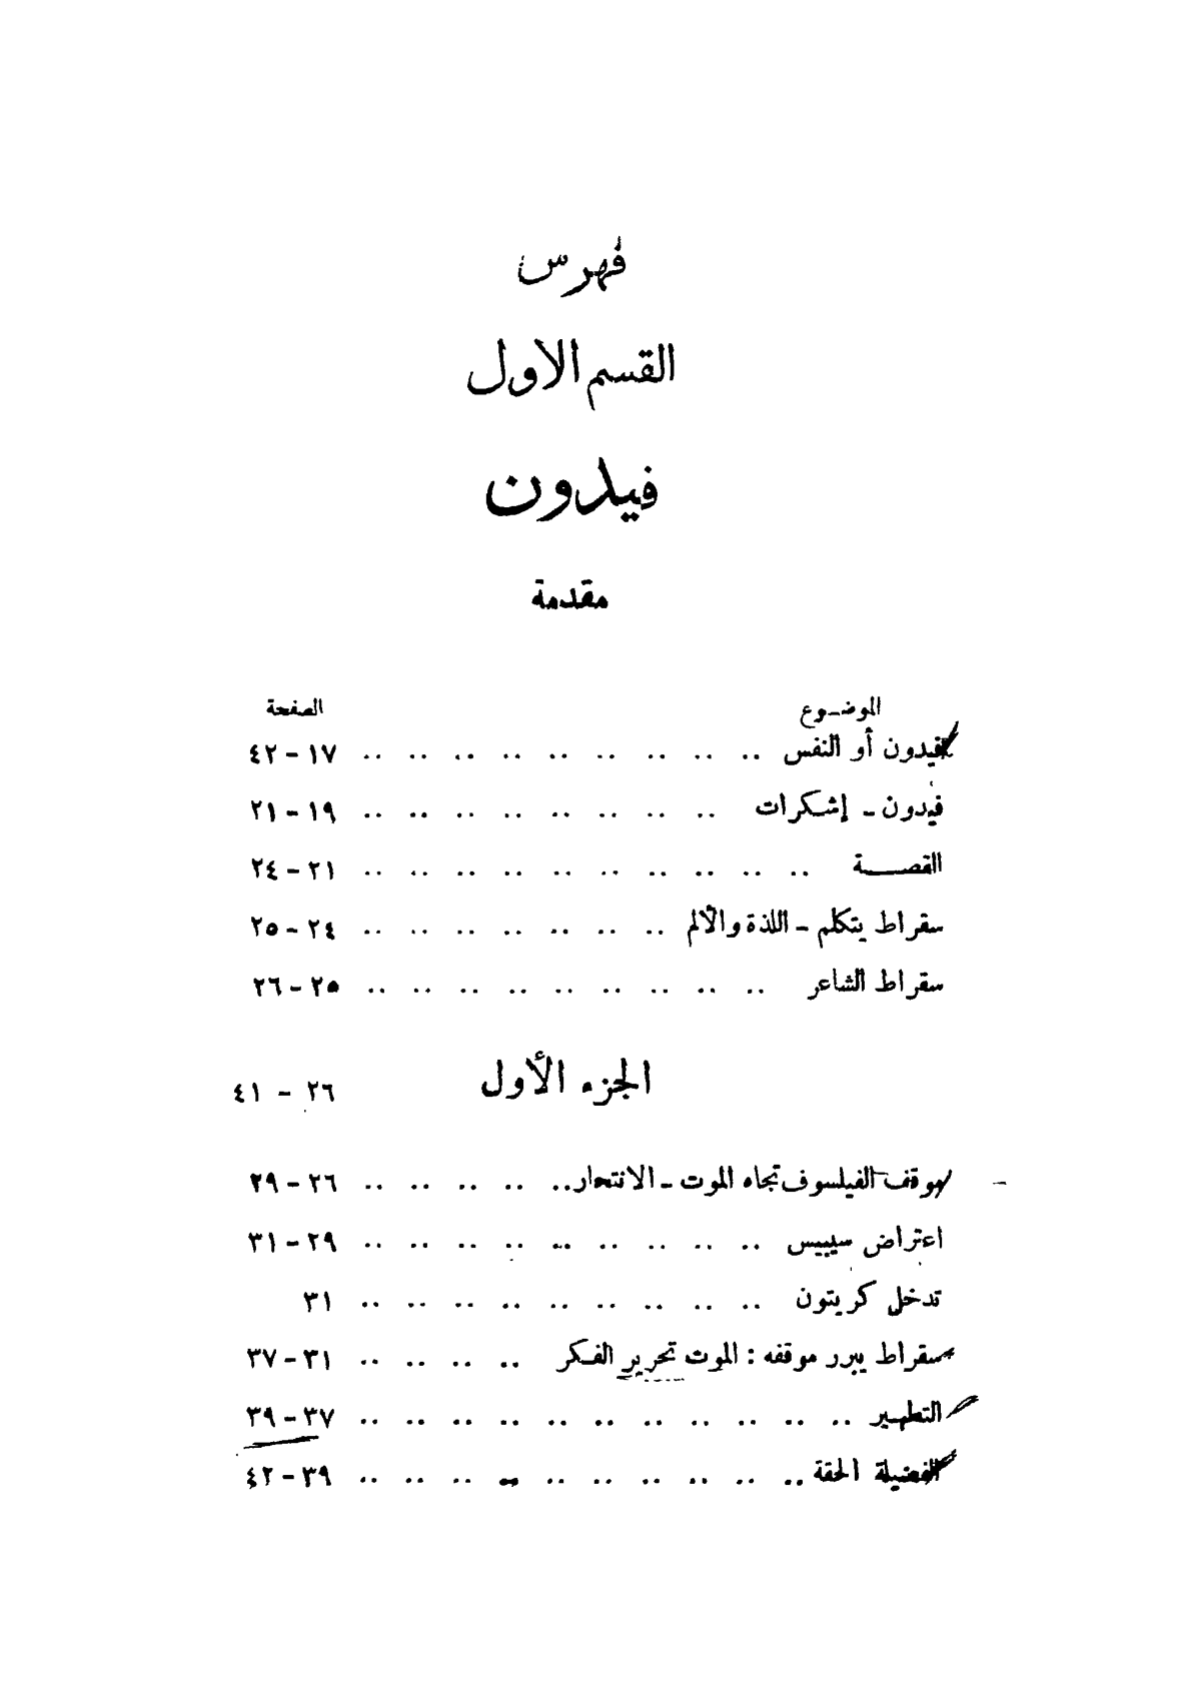 فهرس
القسم الاول
فيدون
مقدمة
الموضوع الصفحة
فيدون أو النفس .. .. .. .. .. .. .. .. .. ١٧ - ٤٢
فيدون - إشكرات .. .. .. .. .. .. .. .. ١٩ - ٢١
القصة .. .. .. .. .. .. .. .. .. .. ٢١ - ٢٤
سقراط يتكلم - اللذة والألم .. .. .. .. .. .. .. ٢٤ - ٢٥
سقراط الشاعر .. .. .. .. .. .. .. .. .. ٢٥ - ٢٦
الجزء الأول ٢٦ - ٤١
موقف الفيلسوف تجاه الموت - الانتحار .. .. .. .. .. ٢٦ - ٢٩
اعتراض سيبيس .. .. .. .. .. .. .. .. .. ٢٩ - ٣١
تدخل كريتون .. .. .. .. .. .. .. .. .. ٣١
سقراط يبرر موقفه : الموت تحرير الفكر .. .. .. .. ٣١ - ٣٧
التطهير .. .. .. .. .. .. .. .. .. .. .. ٣٧ - ٣٩
الفضيلة الحقة .. .. .. .. .. .. .. .. .. .. ٣٩ - ٤٢